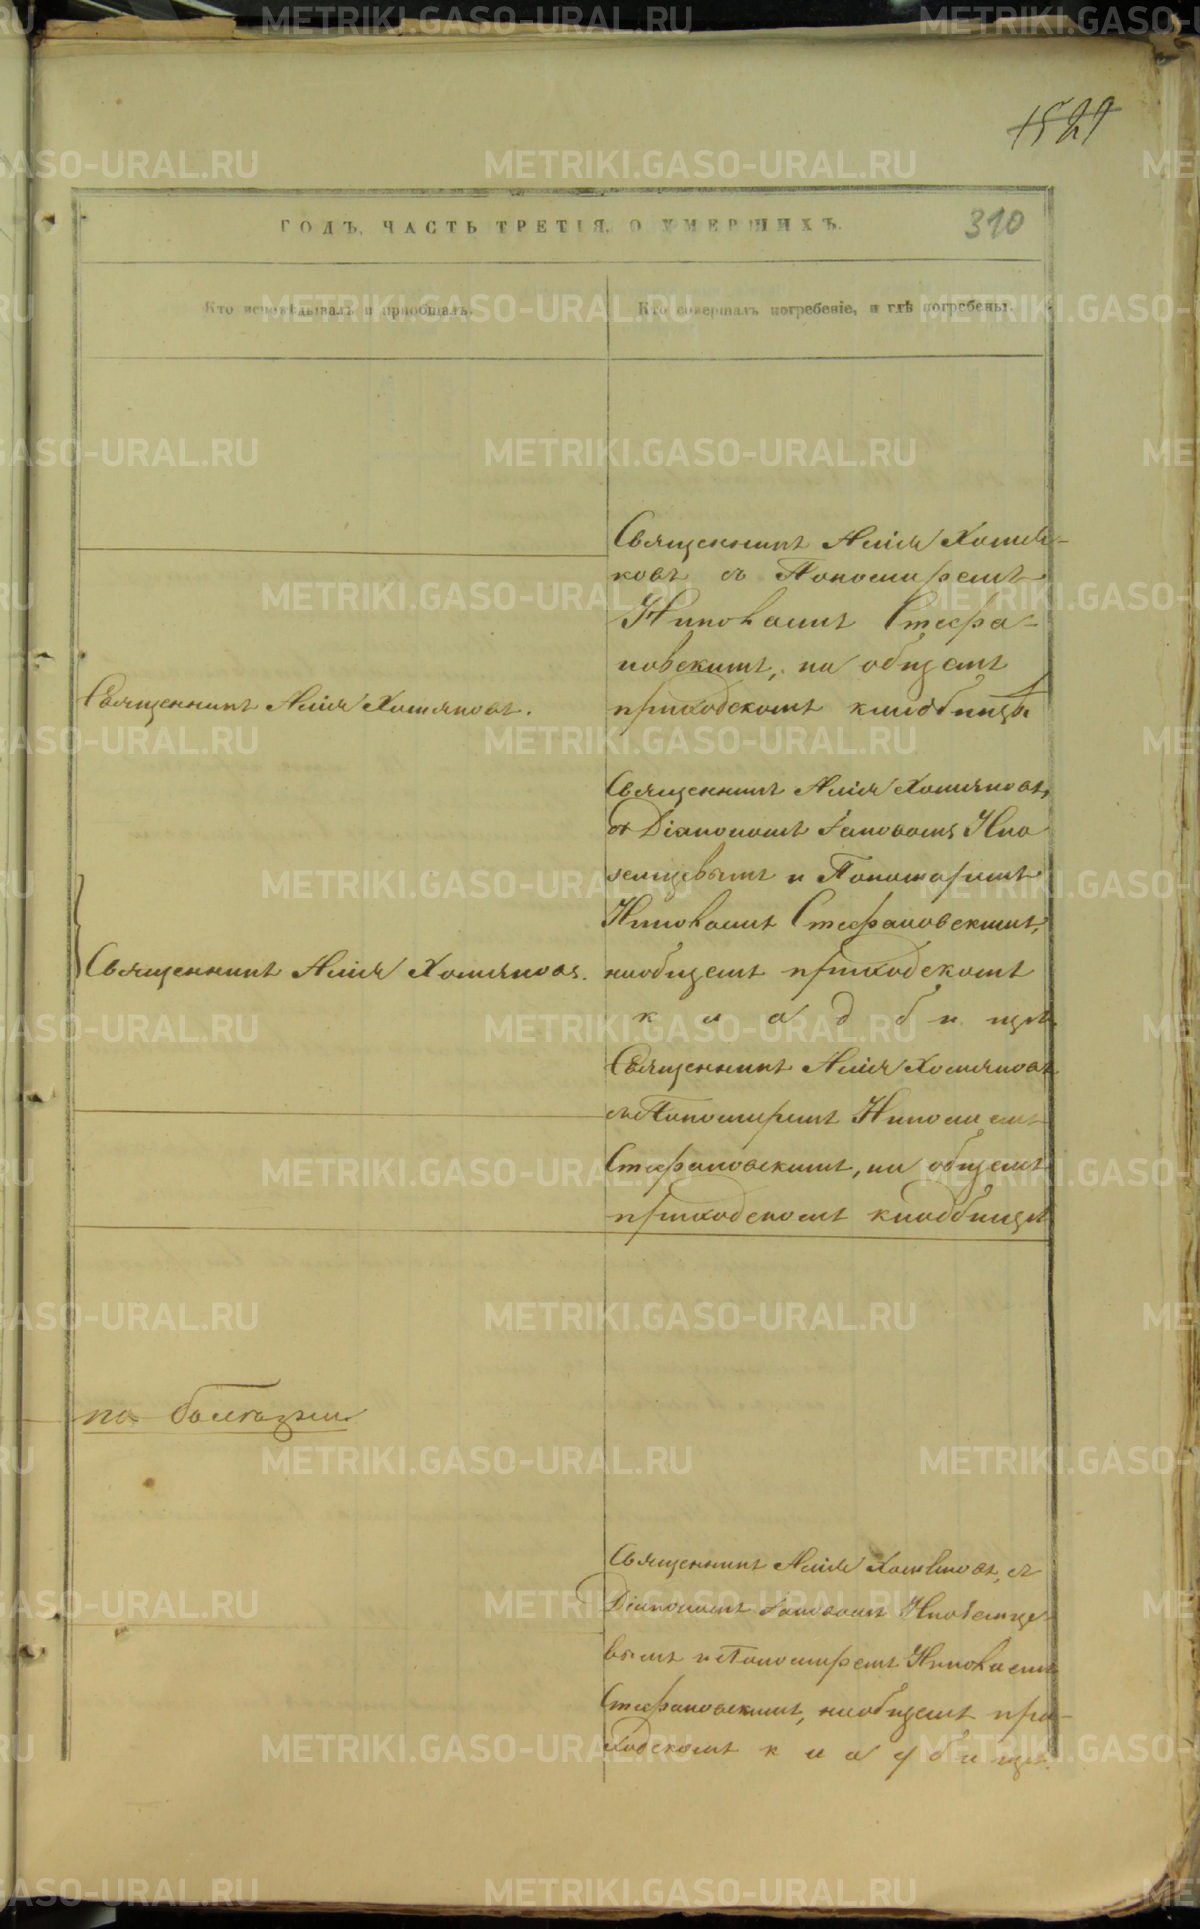 1521
ГОДЪ, ЧАСТЬ ТРЕТІЯ, О УМЕРШИХЪ.
310
Кто исповѣдывалъ и пріобщалъ.
Кто совершалъ погребеніе, и гдѣ погребены.
Священникъ Илія Хомя-
ковъ съ Пономаремъ
Николаемъ Стефа-
новскимъ, на общемъ
приходскомъ кладбищѣ
Священникъ Илія Хомяковъ.
Священникъ Илія Хомяковъ,
съ Діакономъ Іаковомъ
и Пономаремъ
Николаемъ Стефановскимъ,
на общемъ приходскомъ
кладбищѣ
Священникъ Илія Хомяковъ.
Священникъ Илія Хомяковъ
съ Пономаремъ Николаемъ
Стефановскимъ, на общемъ
приходскомъ кладбищѣ
по болѣзни
Священникъ Илія Хомяковъ, съ
Діакономъ Іаковомъ
и Пономаремъ Николаемъ
Стефановскимъ, на общемъ при-
ходскомъ кладбищѣ.
METRIKI.GASO-URAL.RU